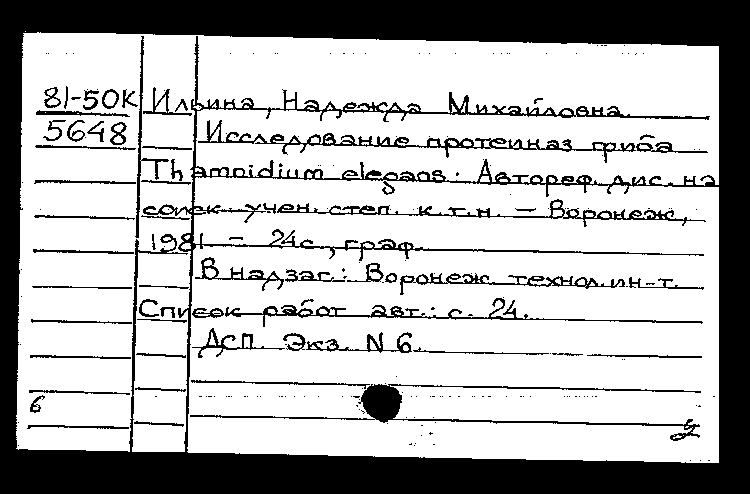 81-50К Ильина, Надежда Михайловна.
5648 Исследование протеиназ гриба
Thamnidium elegans: Автореф. дис. на
соиск. учен. степ. к.т.н. – Воронеж,
1981 – 24с., граф.
В надзаг.: Воронеж. технол. ин-т.
Список работ авт.: с. 24.
ДСП. Экз. N 6.
6